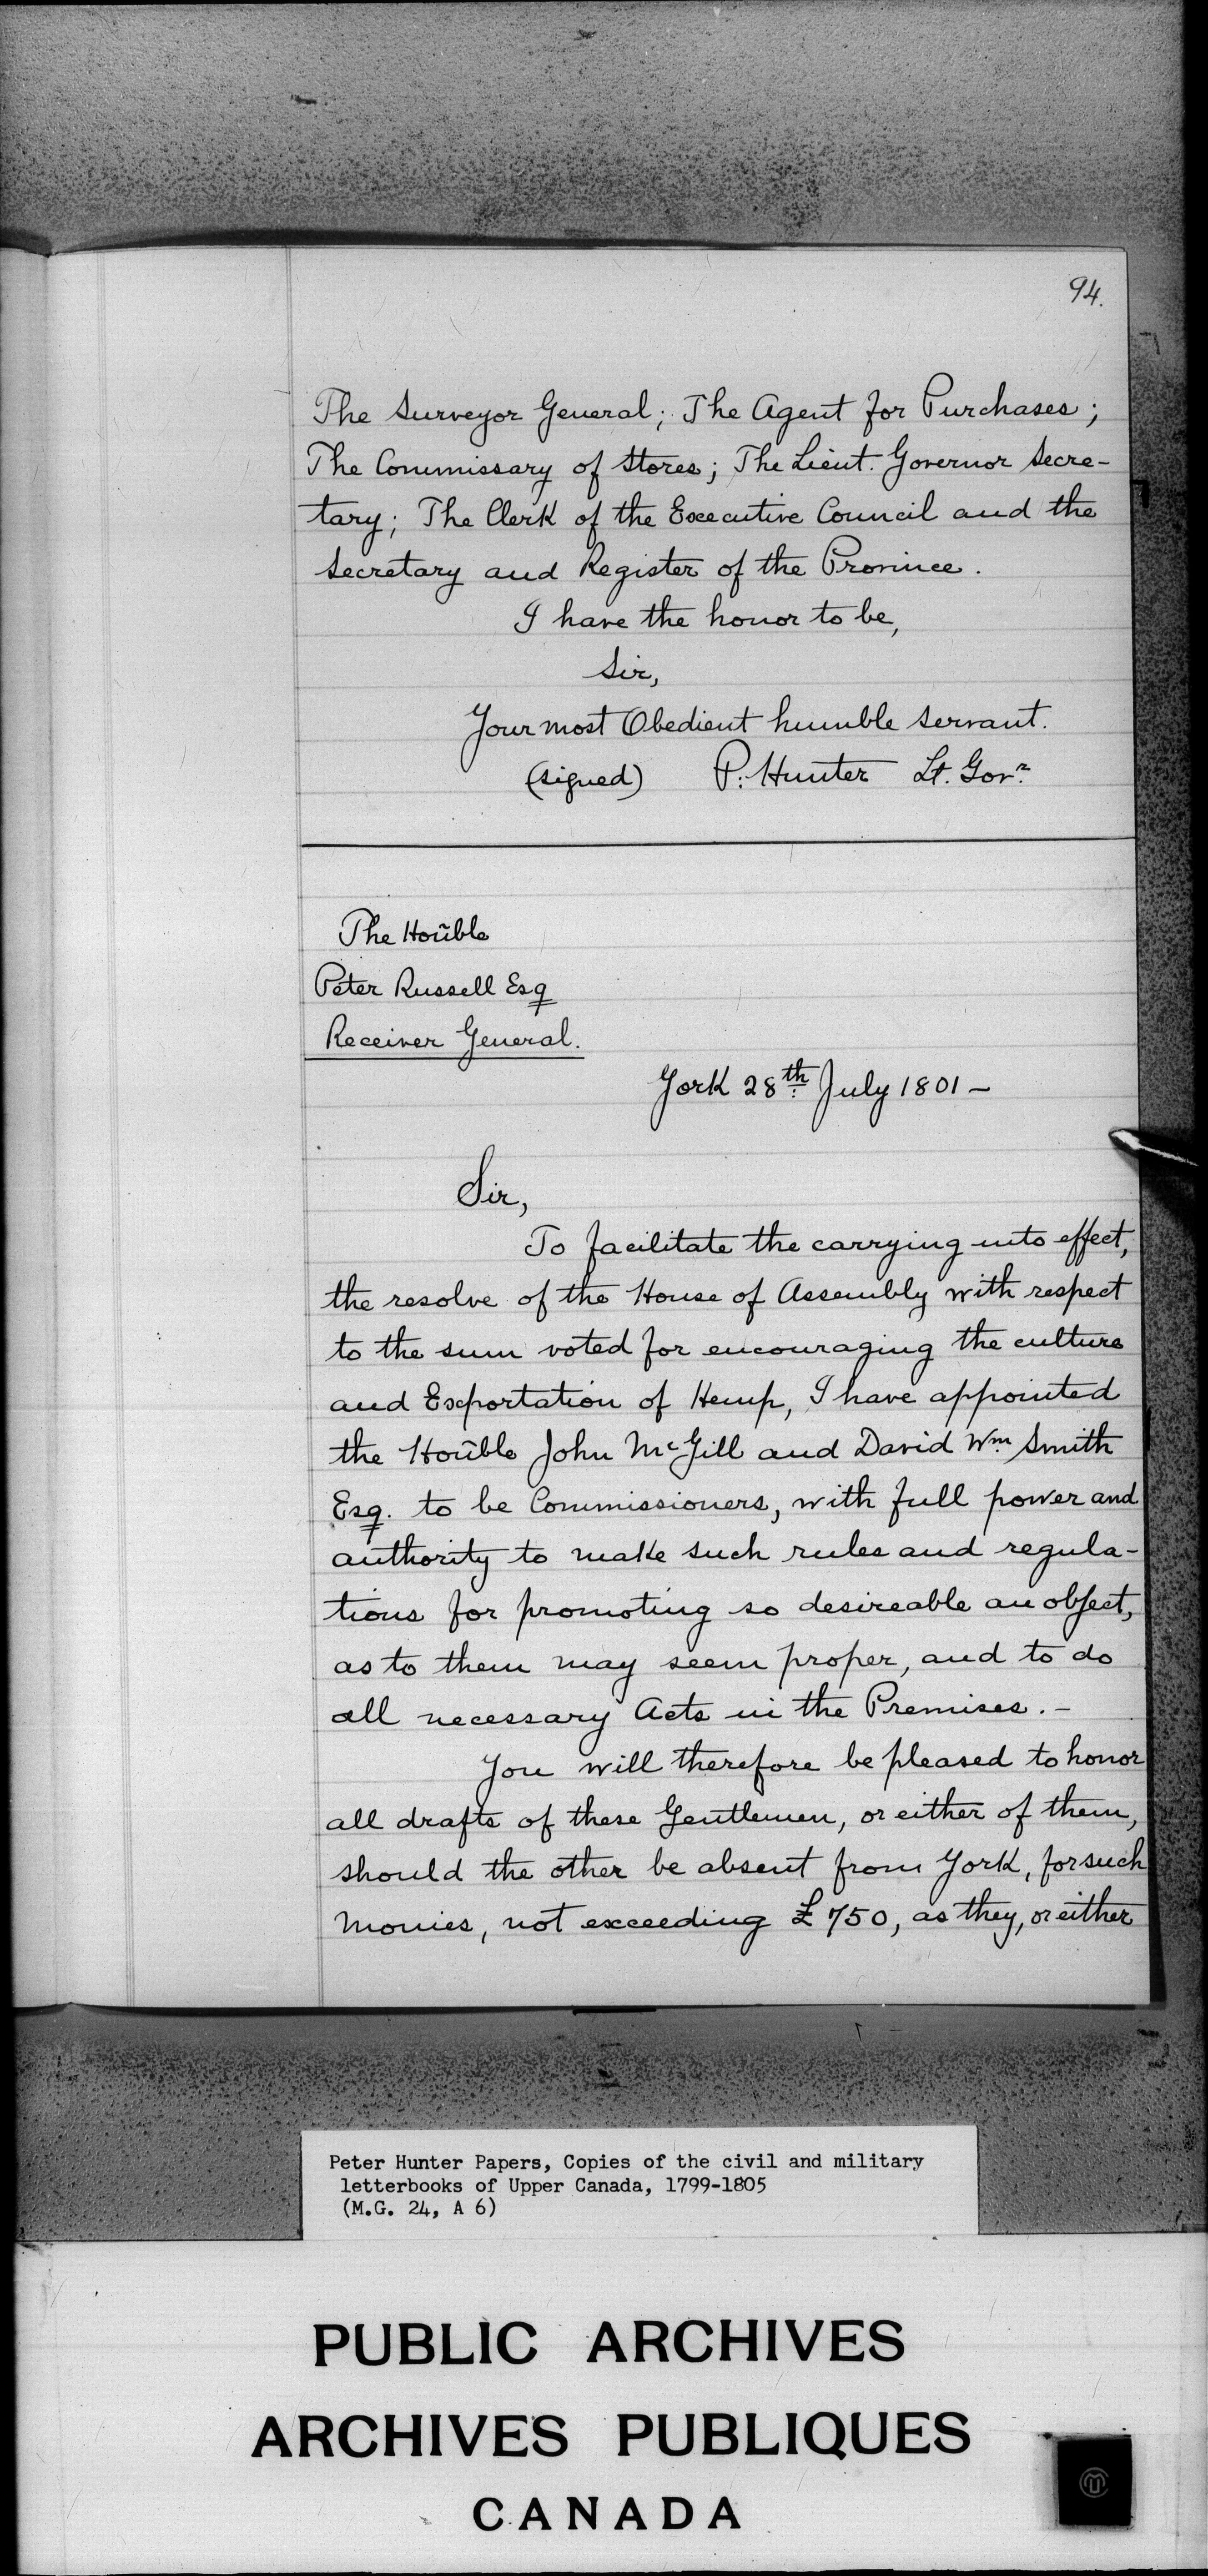 94.
The Surveyor General; The Agent for Purchases;
The Commissary of Stores; The Lieut. Governor Secre-
tary; The Clerk of the Executive Council and the
Secretary and Register of the Province.
I have the honor to be,
Sir,
Your most Obedient humble servant.
(signed) P. Hunter Lt. Govr.
The Honble
Peter Russell Esq
Receiver General.
York 28th July 1801 —
Sir,
To facilitate the carrying into effect,
the resolve of the House of Assembly with respect
to the sum voted for encouraging the culture
and Exportation of Hemp, I have appointed
the Honble John McGill and David Wm Smith
Esq. to be Commissioners, with full power and
authority to make such rules and regula-
tions for promoting so desireable an object,
as to them may seem proper, and to do
all necessary Acts in the Premises. -
You will therefore be pleased to honor
all drafts of these Gentlemen, or either of them,
should the other be absent from York, for such
Monies, not exceeding £750, as they, or either
Peter Hunter Papers, Copies of the civil and military
letterbooks of Upper Canada, 1799-1805
(M.G. 24, A 6)
PUBLIC ARCHIVES
ARCHIVES PUBLIQUES
CANADA